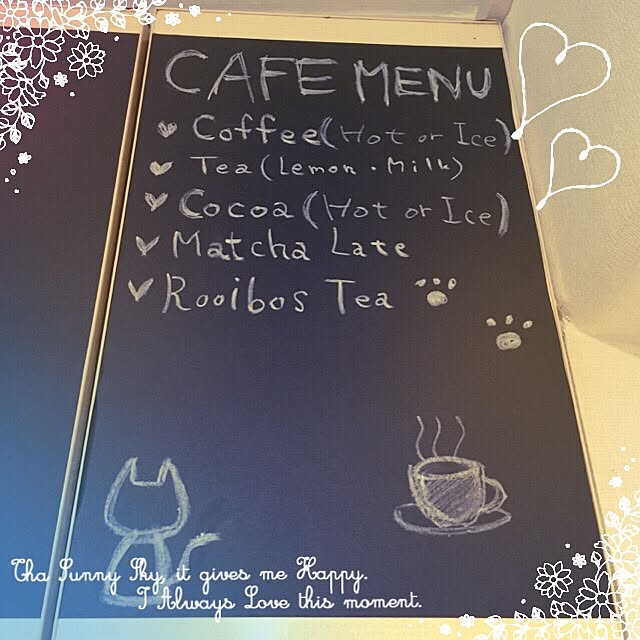 CAFE MENU
Coffee (Hot or Ice)
Tea (Lemon・Milk)
Cocoa (Hot or Ice)
Matcha Late
Rooibos Tea
Tha Sunny Sky, it gives me Happy.
I Always Love this moment.